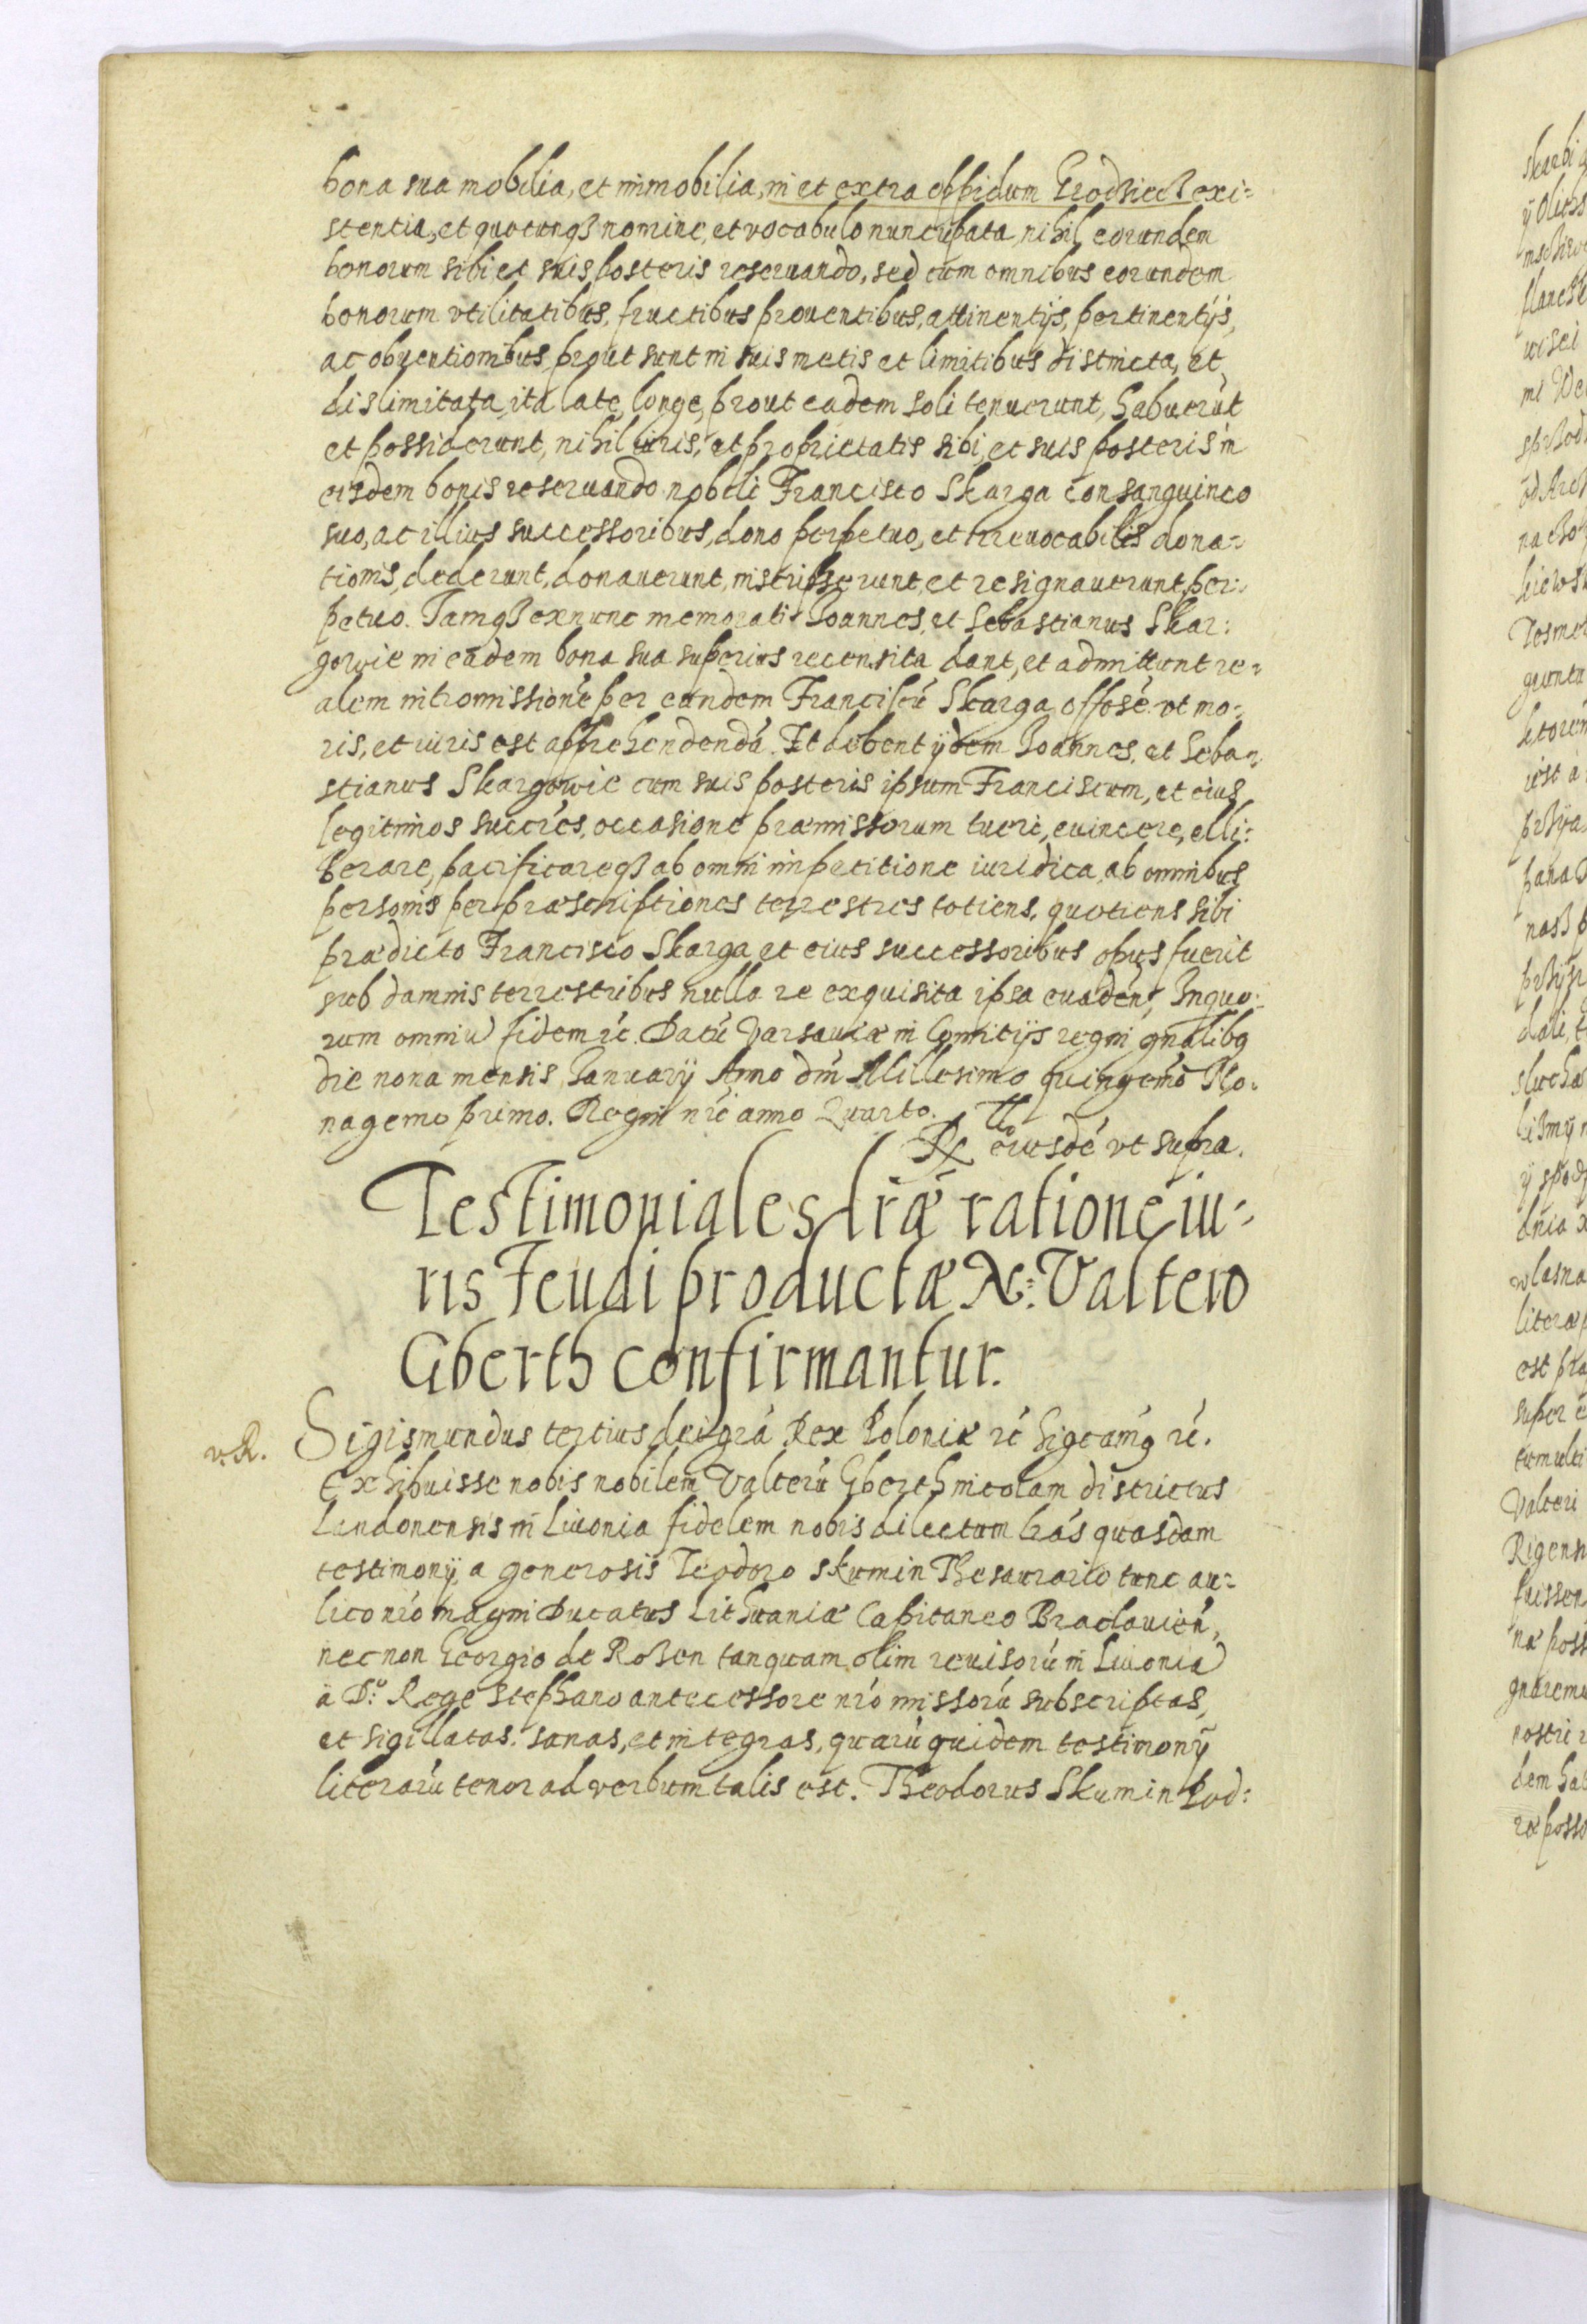 bona sua mobilia, et immobilia, in et extra oppidum Grodziecz exi=
stentia, et quocunqȝ nomine, et vocabulo nuncupata, nihil eorundem
bonorum sibi et suis posteris reseruando, sed cum omnibus eorundem
bonorum vtilitatibus, fructibus prouentibus, attinentijs, pertinentijs,
ac obuentionibus, prout sunt in suis metis et limitibus distincta, et
dislimitata, ita late, longe, prout eadem soli tenuerunt, habuerūt
et possiderunt, nihil iuris, et proprietatis sibi, et suis posteris in
eisdem bonis reseruando nobili Francisco Skarga consanguineo
suo, ac illius successoribus, dono perpetuo, et irreuocabilis dona=
tionis, dederunt, donauerunt, inscripserunt, et resignauerunt per:
petuo. Iamqȝ ex nunc memorati Ioannes, et Sebastianus Skar:
gowie in eadem bona sua superius recensita dant, et admittunt re=
alem intromissionē per eundem Franciscū Skarga offosē. vt mo=
ris, et iuris est apprehendendā. Et debent ijdem Ioannes, et Seba=
stianus Skargowie cum suis posteris ipsum Franciscum, et eius
legitimos succrēs, occasione præmissorum tueri, euincere, elli:
berare, pacificareqȝ ab omni impetitione iuridica, ab omnibus
personis per præscriptiones terrestres totiens, quotiens sibi
prædicto Francisco Skarga et eius successoribus opus fuerit
sub damnis terrestribus nulla re exquisita ipsa euadent, Inquo:
rum omniū fidem rc. Datū Varsauiæ in Comitijs regni gnalibg
die nona mensis Ianuarij Anno dm̄ Millesimo quingēmo No:
nagemo primo. Regni nri anno Quarto.
Rx eiusdē vt supra.
Testimoniales lræ ratione iu=
ris Feudi productæ N: Valtero
Gberth confirmantur.
v. R.
Sigismundus tertius dei grā Rex Poloniæ rc Sigeāmg rc.
Exhibuisse nobis nobilem Valterū Gberth incolam districtus
Lendonensis in Liuonia fidelem nobis dilectum lrās quasdam
testimonij, a generosis Teodoro skumin Thesaurario tunc au=
lico nro magni Ducatus Lithuaniæ Capitaneo Braclauień,
necnon Georgio de Rozen tanquam olim reuisorū in Liuonia
a Do. Rege Stephano antecessore nro missorū subscriptas,
et sigillatas. sanas, et integras, quarū quidem testimonij
literarū tenor ad verbum talis est. Theodorus Skumin Pod: